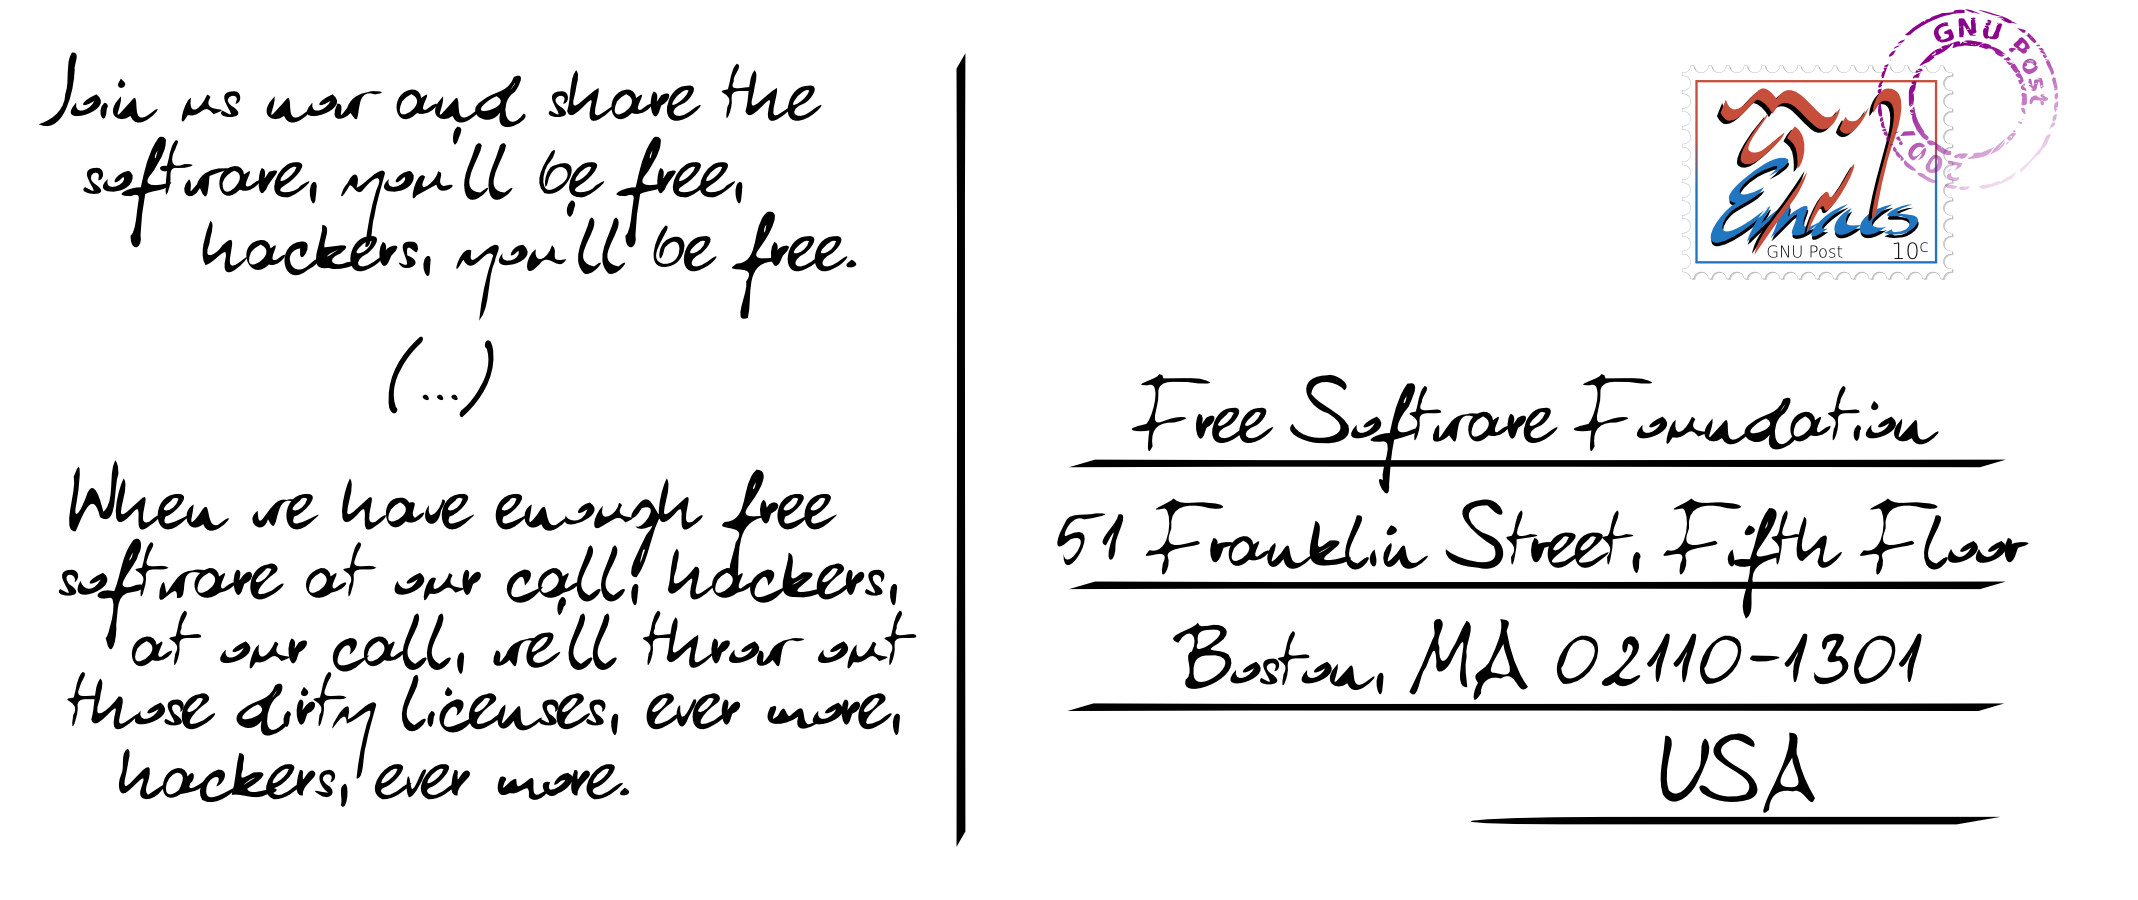 Join us now and share the
software, you'll be free,
hackers, you'll be free.
(...)
When we have enough free
software at our call, hackers,
at our call, we'll throw out
those dirty licenses, ever more,
hackers, ever more.
GNU Post
2007
Emacs
GNU Post 10c
Free Software Foundation
51 Franklin Street, Fifth Floor
Boston, MA 02110-1301
USA